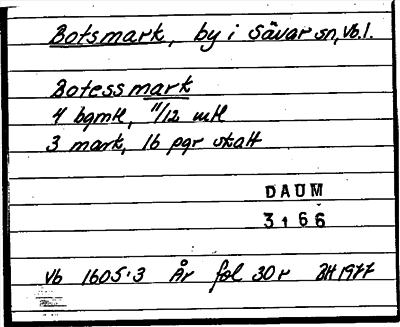 Botsmark, by i Sävar sn, Vb. l.
Botessmark
4 bgmtl, 11/12 mtl
3 mark, 16 pgr skatt
DAUM
3166
Vb 1605:3 År fol 30r 1977